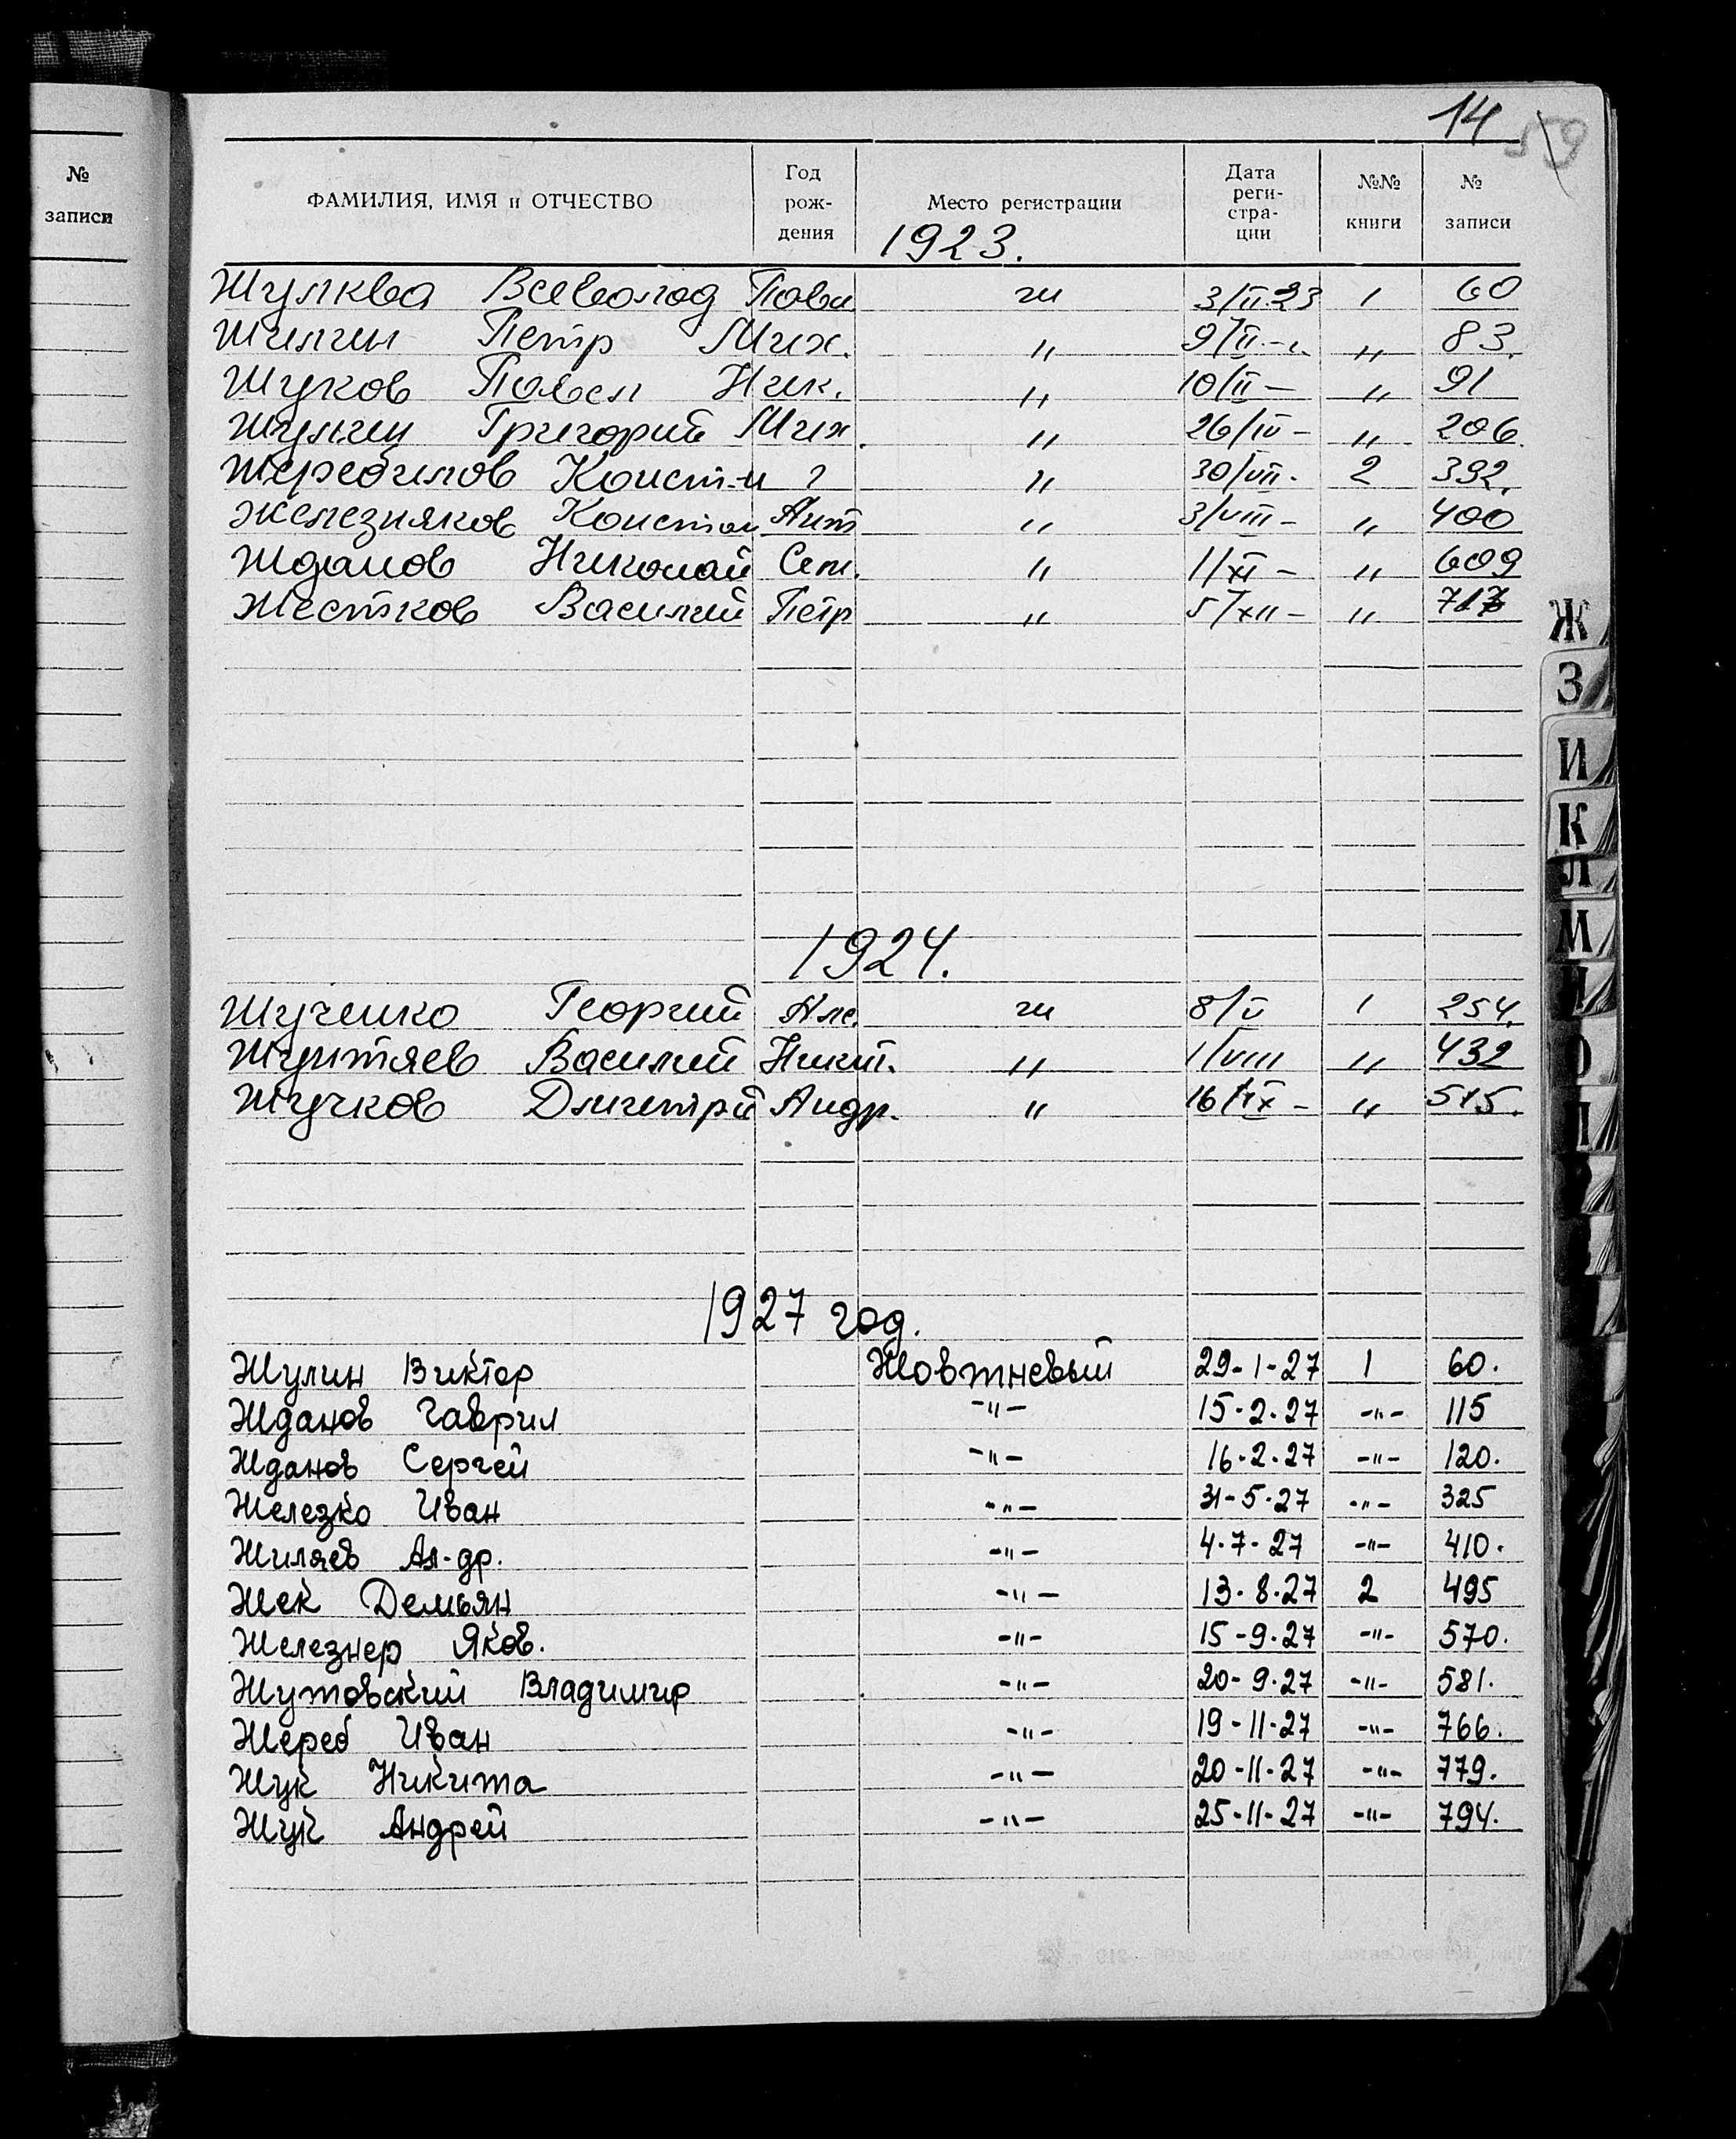 14 59
№ записи
ФАМИЛИЯ, ИМЯ и ОТЧЕСТВО Год рождения Место регистрации Дата регистрации №№ книги № записи
1923.
Жулква Всеволод Павл. 3/II-23 1 60
Жилин Петр Мих. " 9/II-". " 83.
Жуков Павел Ник. " 10/II- " 91
Жулин Григорий Мих. " 26/IV- " 206.
Жеребилов Конст-н ? " 30/VII- 2 392.
Железняков Констан Ант " 3/VIII- " 400
Жданов Николай Сем. " 1/XI- " 609
Жестков Василий Петр " 5/XII- " 717
1924.
Жученко Георгий Але. 8/V 1 254.
Жунтяев Василий Никит. " 1/VIII " 432
Жучков Дмитрий Андр. " 16/IX- " 515.
1927 год.
Жулин Виктор Жовтневый 29-1-27 1 60.
Жданов Гаврил -"- 15-2.27 -"- 115
Жданов Сергей -"- 16-2.27 -"- 120.
Железко Иван -"- 31-5.27 -"- 325
Жиляев Ал-др. -"- 4.7-27 -"- 410.
Жек Демьян -"- 13-8.27 2 495
Железнер Яков. -"- 15-9.27 -"- 570.
Жутовский Владимир -"- 20-9.27 -"- 581.
Жереб Иван -"- 19-11-27 -"- 766.
Жук Никита -"- 20-11-27 -"- 779.
Жук Андрей -"- 25-11-27 -"- 794.
Ж
З
И
К
Л
М
Н
О
П